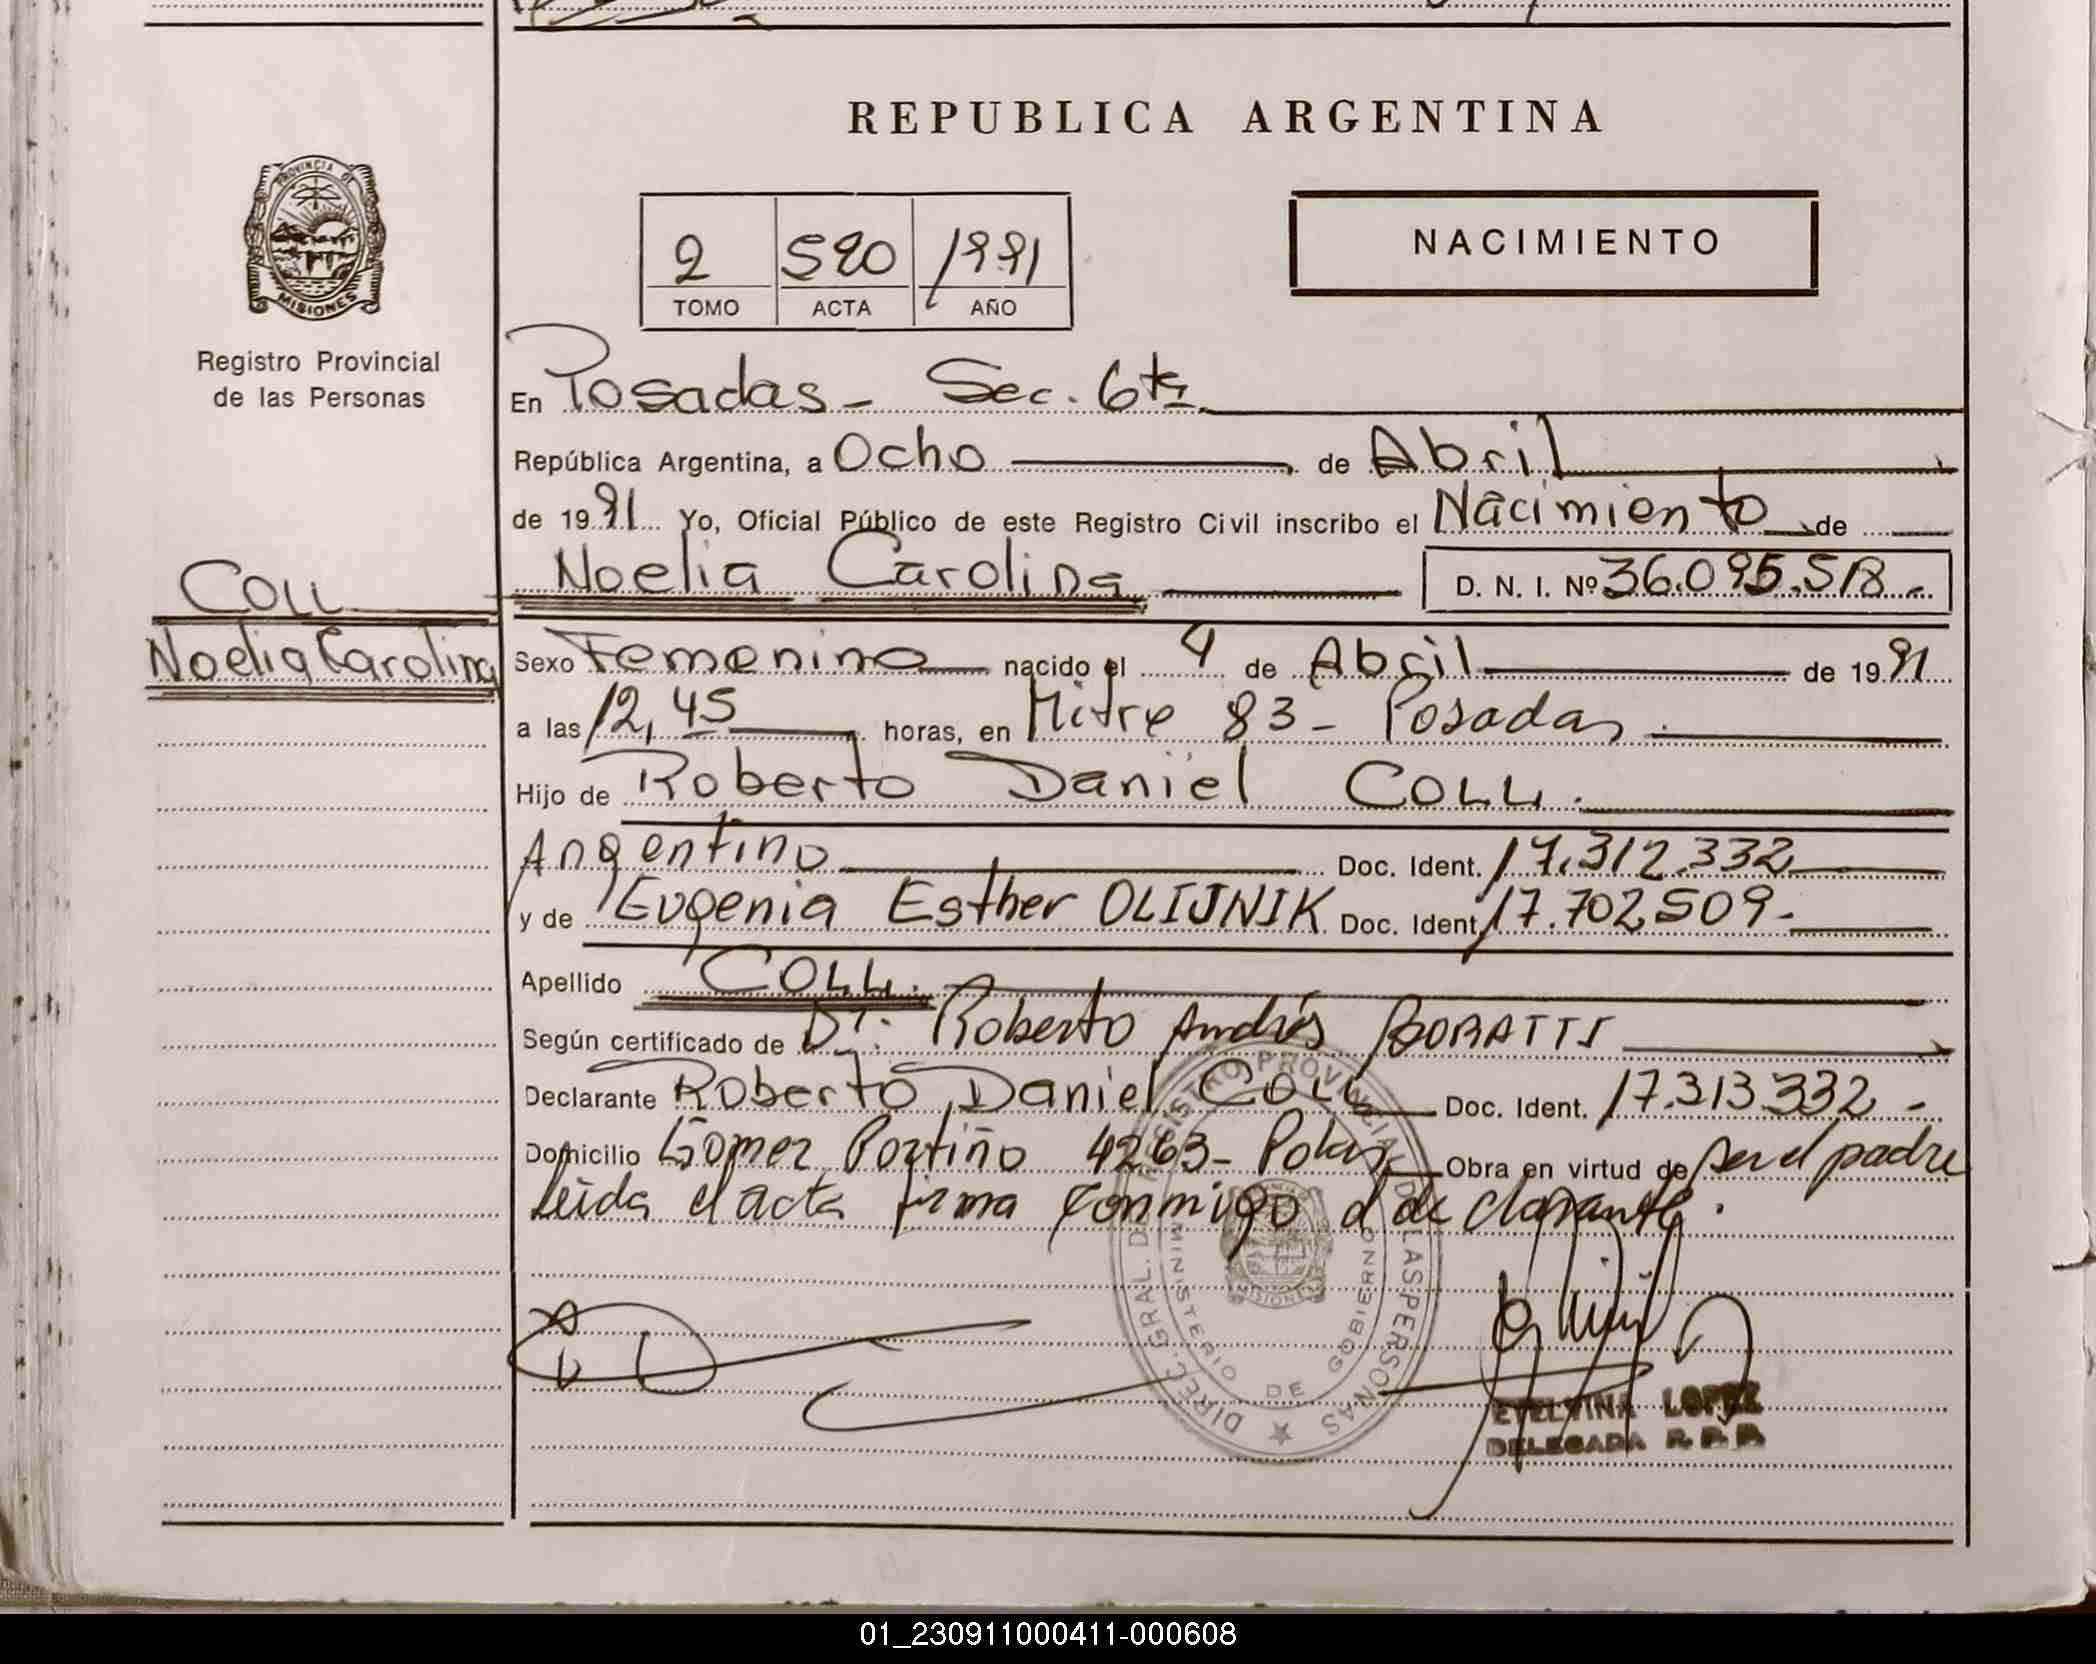 REPUBLICA ARGENTINA
PROVINCIA DE
MISIONES
Registro Provincial
de las Personas
2 520 1991
TOMO ACTA AÑO
NACIMIENTO
En Posadas - Sec. 6ta
República Argentina, a Ocho de Abril
de 1991 Yo, Oficial Público de este Registro Civil inscribo el Nacimiento de
Noelia Carolina D. N. I. Nº 36.095.518.-
COLL
Noelia Carolina
Sexo Femenino nacido el 4 de Abril de 1991
a las 12,45 horas, en Mitre 83 - Posadas
Hijo de Roberto Daniel COLL.
Argentino Doc. Ident. 17.312.332
y de Eugenia Esther OLIJNIK Doc. Ident. 17.702.509-
Apellido COLL.
Según certificado de Dr. Roberto Andrés BORATTI
Declarante Roberto Daniel COLL Doc. Ident. 17.313.332 -
Domicilio Gomez Portiño 4263- Obra en virtud de ser el padre
leida el acta firma conmigo el declarante.
DIREC. GRAL. DE REGISTRO PROVINCIAL DE LAS PERSONAS
MINISTERIO DE GOBIERNO
MISIONES
ETELVINA LOPEZ
DELEGADA R. P. P.
01_230911000411-000608